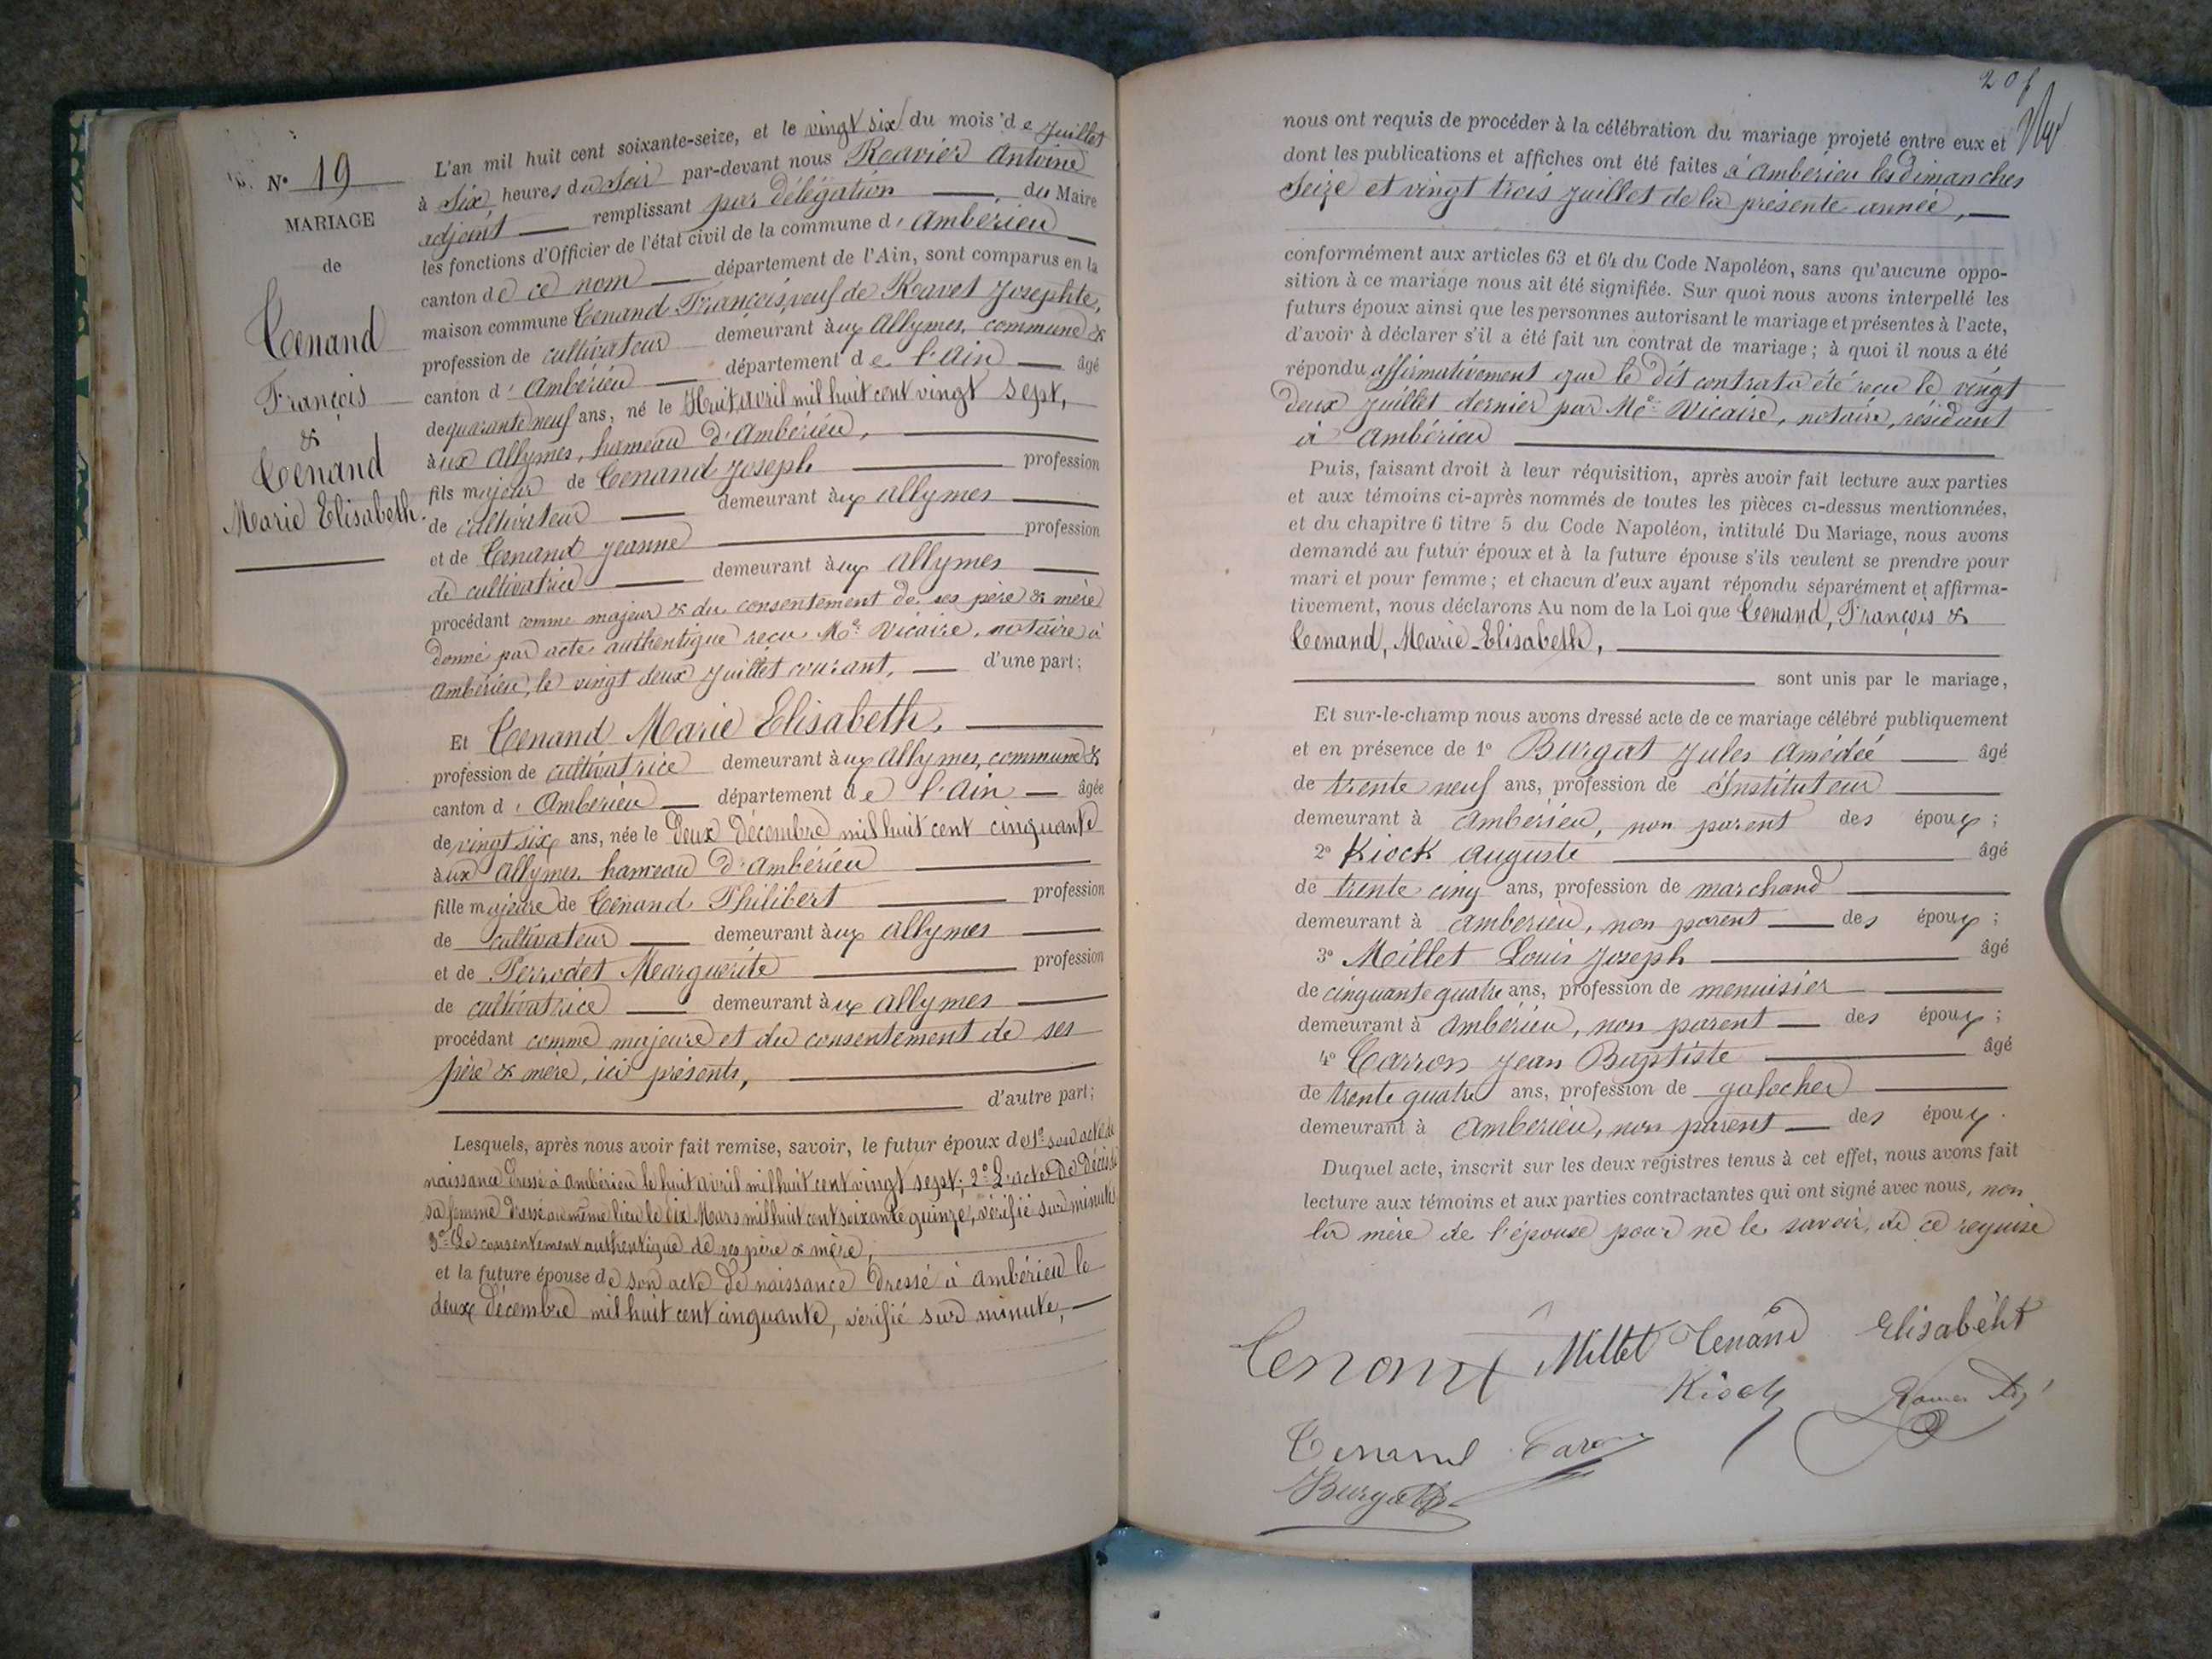 N° 19
MARIAGE
de
Cenand
François
&
Cenand
Marie Elisabeth.
L'an mil huit cent soixante-seize, et le vingt six du mois de Juillet
à Six heures du Soir par-devant nous Ravier Antoine
adjoint remplissant par délégation du Maire
les fonctions d'Officier de l'état civil de la commune d'Ambérieu
canton de ce nom département de l'Ain, sont comparus en la
maison commune Cenand François, veuf de Ravet Josephte,
profession de cultivateur demeurant aux Allymes, commune &
canton d'Ambérieu département de l'Ain âgé
de quarante neuf ans, né le Huit avril mil huit cent vingt sept,
aux Allymes, hameau d'Ambérieu,
fils majeur de Cenand Joseph profession
de cultivateur demeurant aux Allymes
et de Cenand Jeanne profession
de cultivatrice demeurant aux Allymes
procédant comme majeur & du consentement de ses père & mère
donné par acte authentique reçu Me Vicaire, notaire à
Ambérieu, le vingt deux Juillet courant, d'une part;
Et Cenand Marie Elisabeth,
profession de cultivatrice demeurant aux Allymes, commune &
canton d'Ambérieu département de l'Ain âgée
de vingt six ans, née le Deux Décembre mil huit cent cinquante
aux Allymes hameau d'Ambérieu
fille majeure de Cenand Philibert profession
de cultivateur demeurant aux Allymes
et de Perrodet Marguerite profession
de cultivatrice demeurant aux Allymes
procédant comme majeure et du consentement de ses
père & mère, ici présents,
d'autre part;
Lesquels, après nous avoir fait remise, savoir, le futur époux de 1° son acte de
naissance dressé à Ambérieu le huit avril mil huit cent vingt sept; 2° L'acte de Décès de
sa femme dressé au même lieu le dix Mars mil huit cent soixante quinze, vérifié sur minutes
3° Le consentement authentique de ses père & mère,
et la future épouse de son acte de naissance dressé à Ambérieu le
deux Décembre mil huit cent cinquante, vérifié sur minute,
nous ont requis de procéder à la célébration du mariage projeté entre eux et
dont les publications et affiches ont été faites à Ambérieu les Dimanches
Seize et vingt trois Juillet de la présente année,
conformément aux articles 63 et 64 du Code Napoléon, sans qu'aucune oppo-
sition à ce mariage nous ait été signifiée. Sur quoi nous avons interpellé les
futurs époux ainsi que les personnes autorisant le mariage et présentes à l'acte,
d'avoir à déclarer s'il a été fait un contrat de mariage; à quoi il nous a été
répondu affirmativement que le dit contrat a été reçu le vingt
deux Juillet dernier par Me Vicaire, notaire, résidant
à Ambérieu
Puis, faisant droit à leur réquisition, après avoir fait lecture aux parties
et aux témoins ci-après nommés de toutes les pièces ci-dessus mentionnées,
et du chapitre 6 titre 5 du Code Napoléon, intitulé Du Mariage, nous avons
demandé au futur époux et à la future épouse s'ils veulent se prendre pour
mari et pour femme; et chacun d'eux ayant répondu séparément et affirma-
tivement, nous déclarons Au nom de la Loi que Cenand, François &
Cenand, Marie-Elisabeth,
sont unis par le mariage,
Et sur-le-champ nous avons dressé acte de ce mariage célébré publiquement
et en présence de 1° Burgat Jules Amédée âgé
de trente neuf ans, profession de Instituteur
demeurant à Ambérieu, non parent des époux;
2° Kiock Auguste âgé
de trente cinq ans, profession de marchand
demeurant à Ambérieu, non parent des époux;
3° Millet Louis Joseph âgé
de cinquante quatre ans, profession de menuisier
demeurant à Ambérieu, non parent des époux;
4° Carron Jean Baptiste âgé
de trente quatre ans, profession de galocher
demeurant à Ambérieu, non parent des époux.
Duquel acte, inscrit sur les deux registres tenus à cet effet, nous avons fait
lecture aux témoins et aux parties contractantes qui ont signé avec nous, non
la mère de l'épouse pour ne le savoir, de ce requise
Cenand Millet Cenand Elisabeht
Kiock
Cenand Caron
Burgat